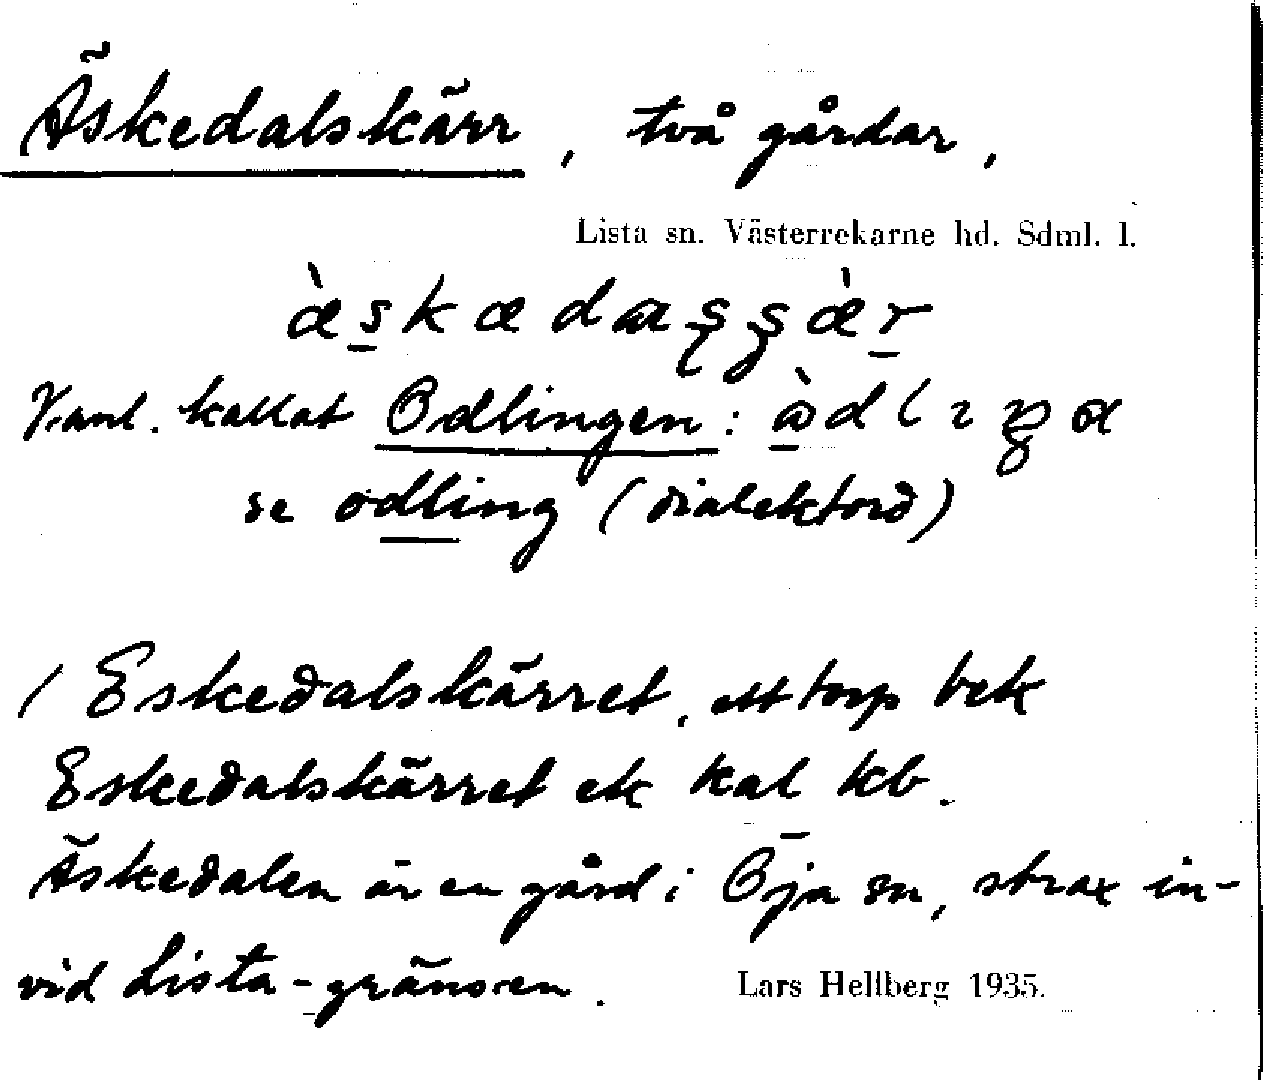 Äskedalskärr, två gårdar,
Lista sn. Västerrekarne hd. Sdml. l.
Vanl. kallat Odlingen:
se odling (dialektord)
( Eskedalskärret, ett torp bek
Eskedalskärret ek kal kb.
Äskedalen är en gård i Öja sn, strax in-
vid Lista-gränsen. Lars Hellberg 1935.